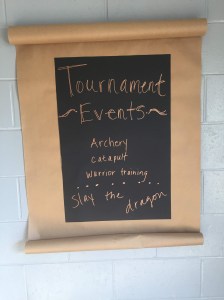 Tournament
~Events~
Archery
catapult
Warrior training
Slay the dragon